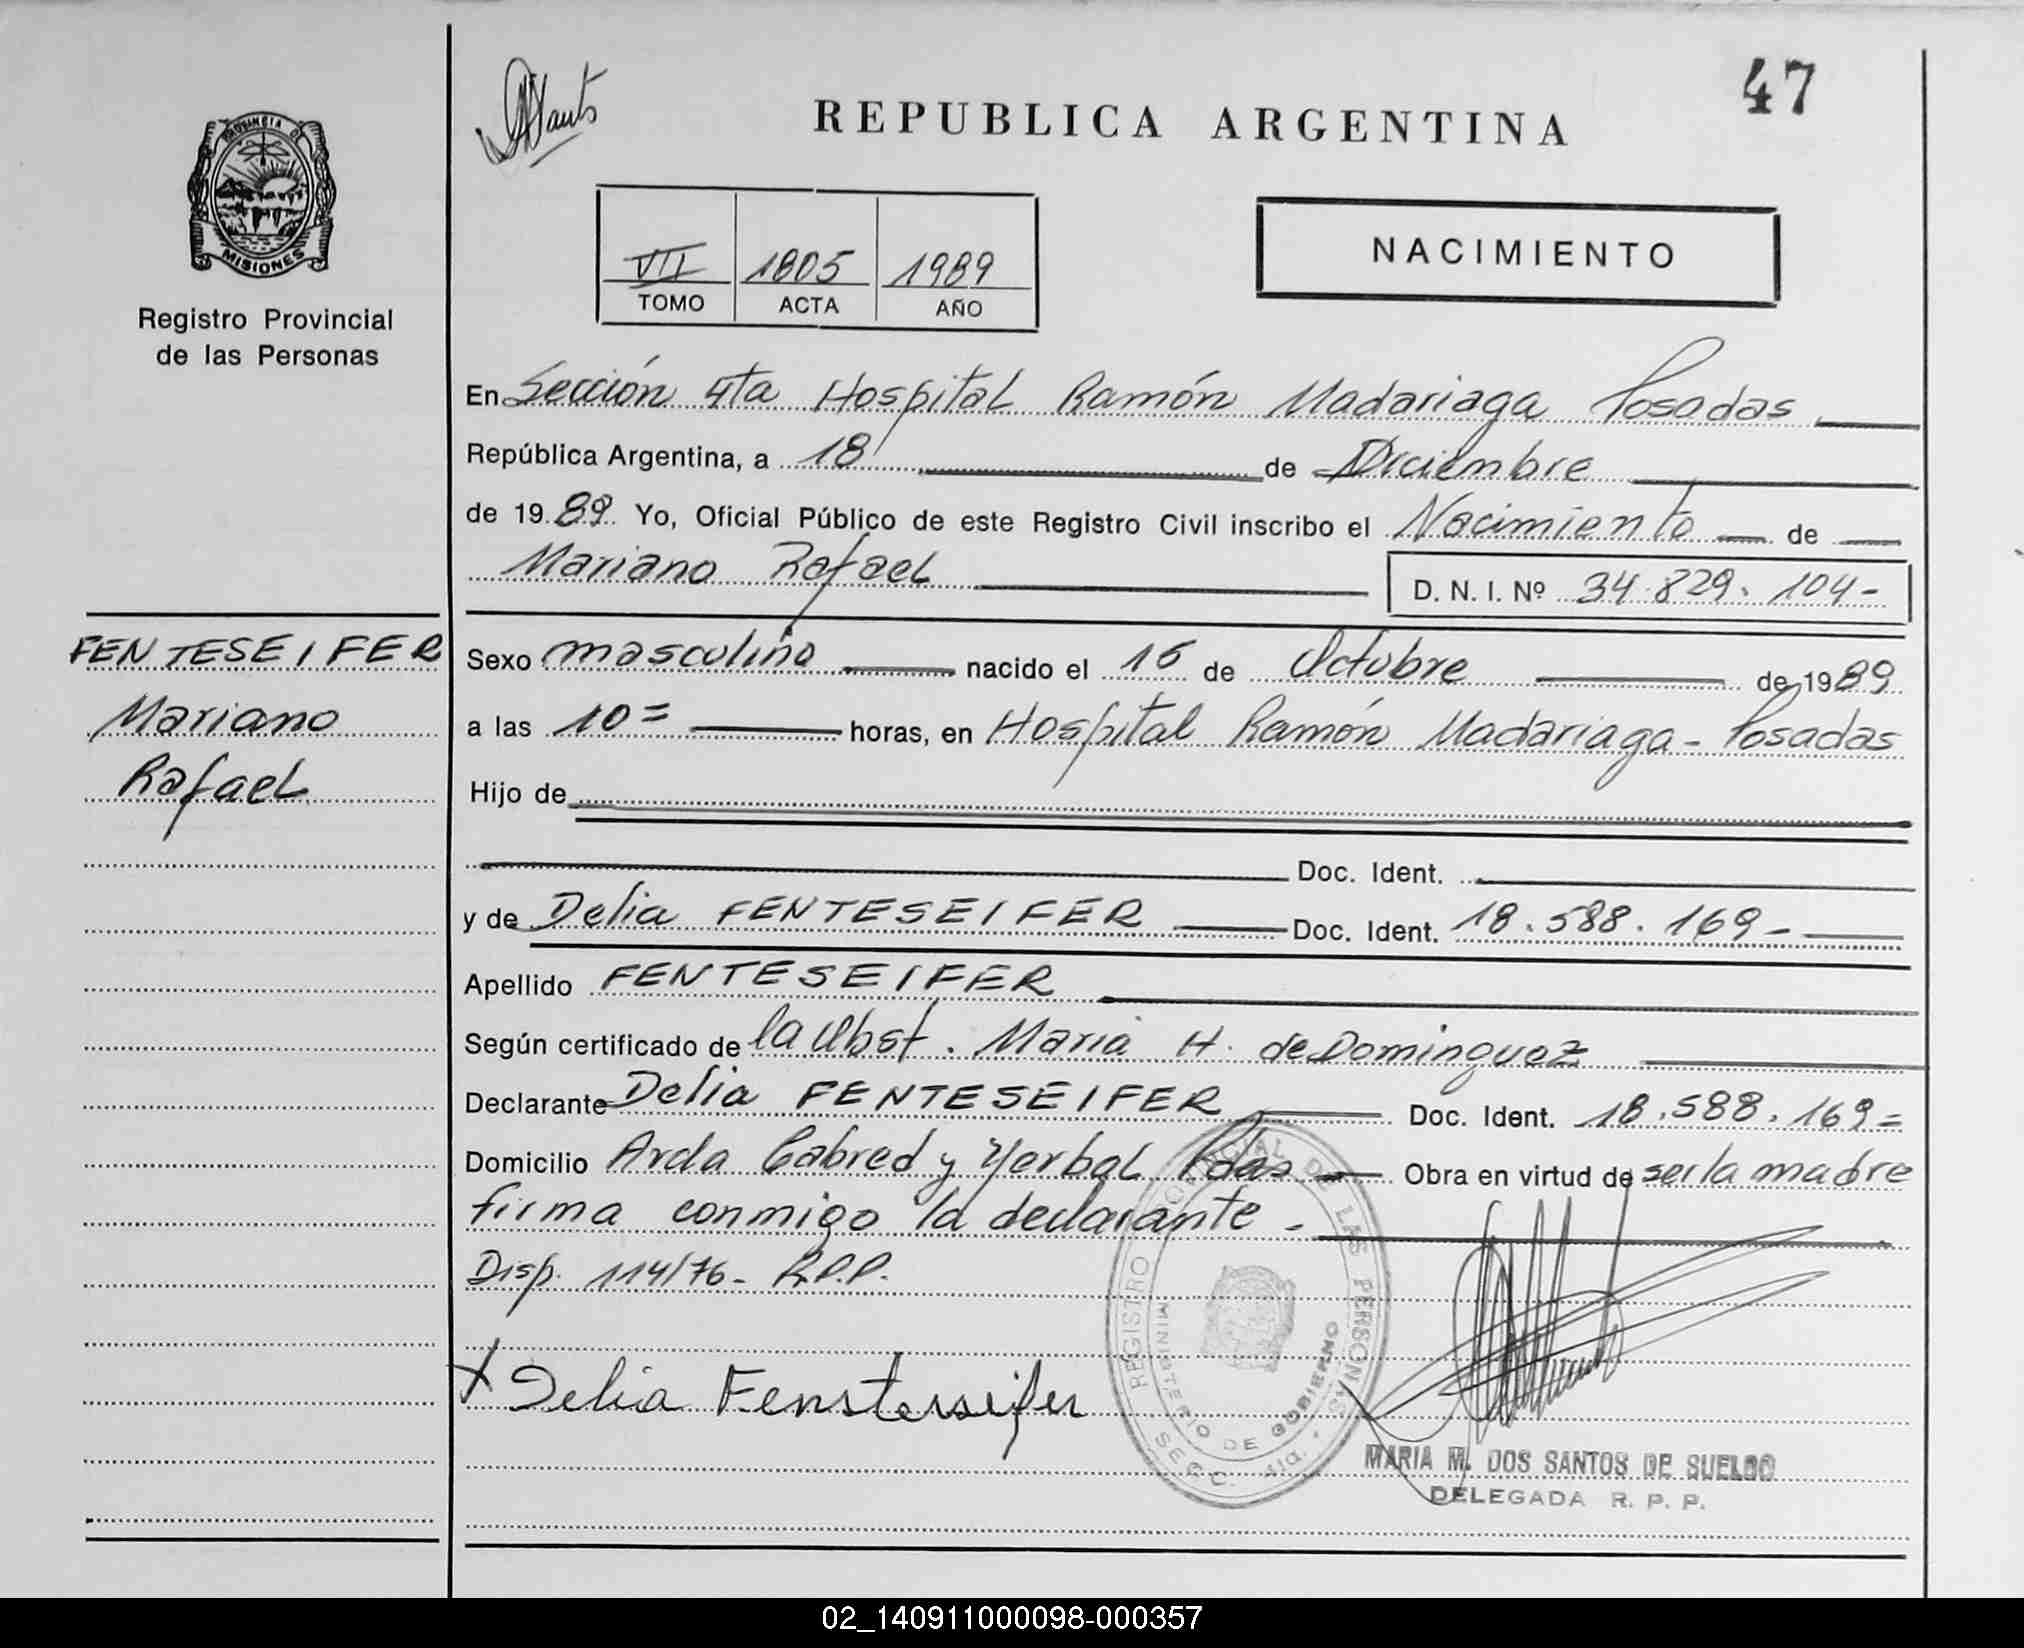 47
REPUBLICA ARGENTINA
PROVINCIA DE
MISIONES
Registro Provincial
de las Personas
VII 1805 1989
TOMO ACTA AÑO
NACIMIENTO
En Sección 4ta Hospital Ramón Madariaga Posadas
República Argentina, a 18 de Diciembre
de 1989 Yo, Oficial Público de este Registro Civil inscribo el Nacimiento de
Mariano Rafael D. N. I. Nº 34.829.104-
FENTESEIFER
Mariano
Rafael
Sexo masculino nacido el 16 de Octubre de 1989
a las 10= horas, en Hospital Ramón Madariaga - Posadas
Hijo de
Doc. Ident.
y de Delia FENTESEIFER Doc. Ident. 18.588.169-
Apellido FENTESEIFER
Según certificado de la Obst. María H. de Dominguez
Declarante Delia FENTESEIFER Doc. Ident. 18.588.169=
Domicilio Avda Cabred y Yerbal Pdas - Obra en virtud de ser la madre
firma conmigo la declarante -
Disp. 114/76- R.P.P.
X Delia Fensterseifer
REGISTRO PROVINCIAL DE LAS PERSONAS
MINISTERIO DE GOBIERNO
SECC. 4ta.
MARIA M. DOS SANTOS DE SUELDO
DELEGADA R. P. P.
02_140911000098-000357